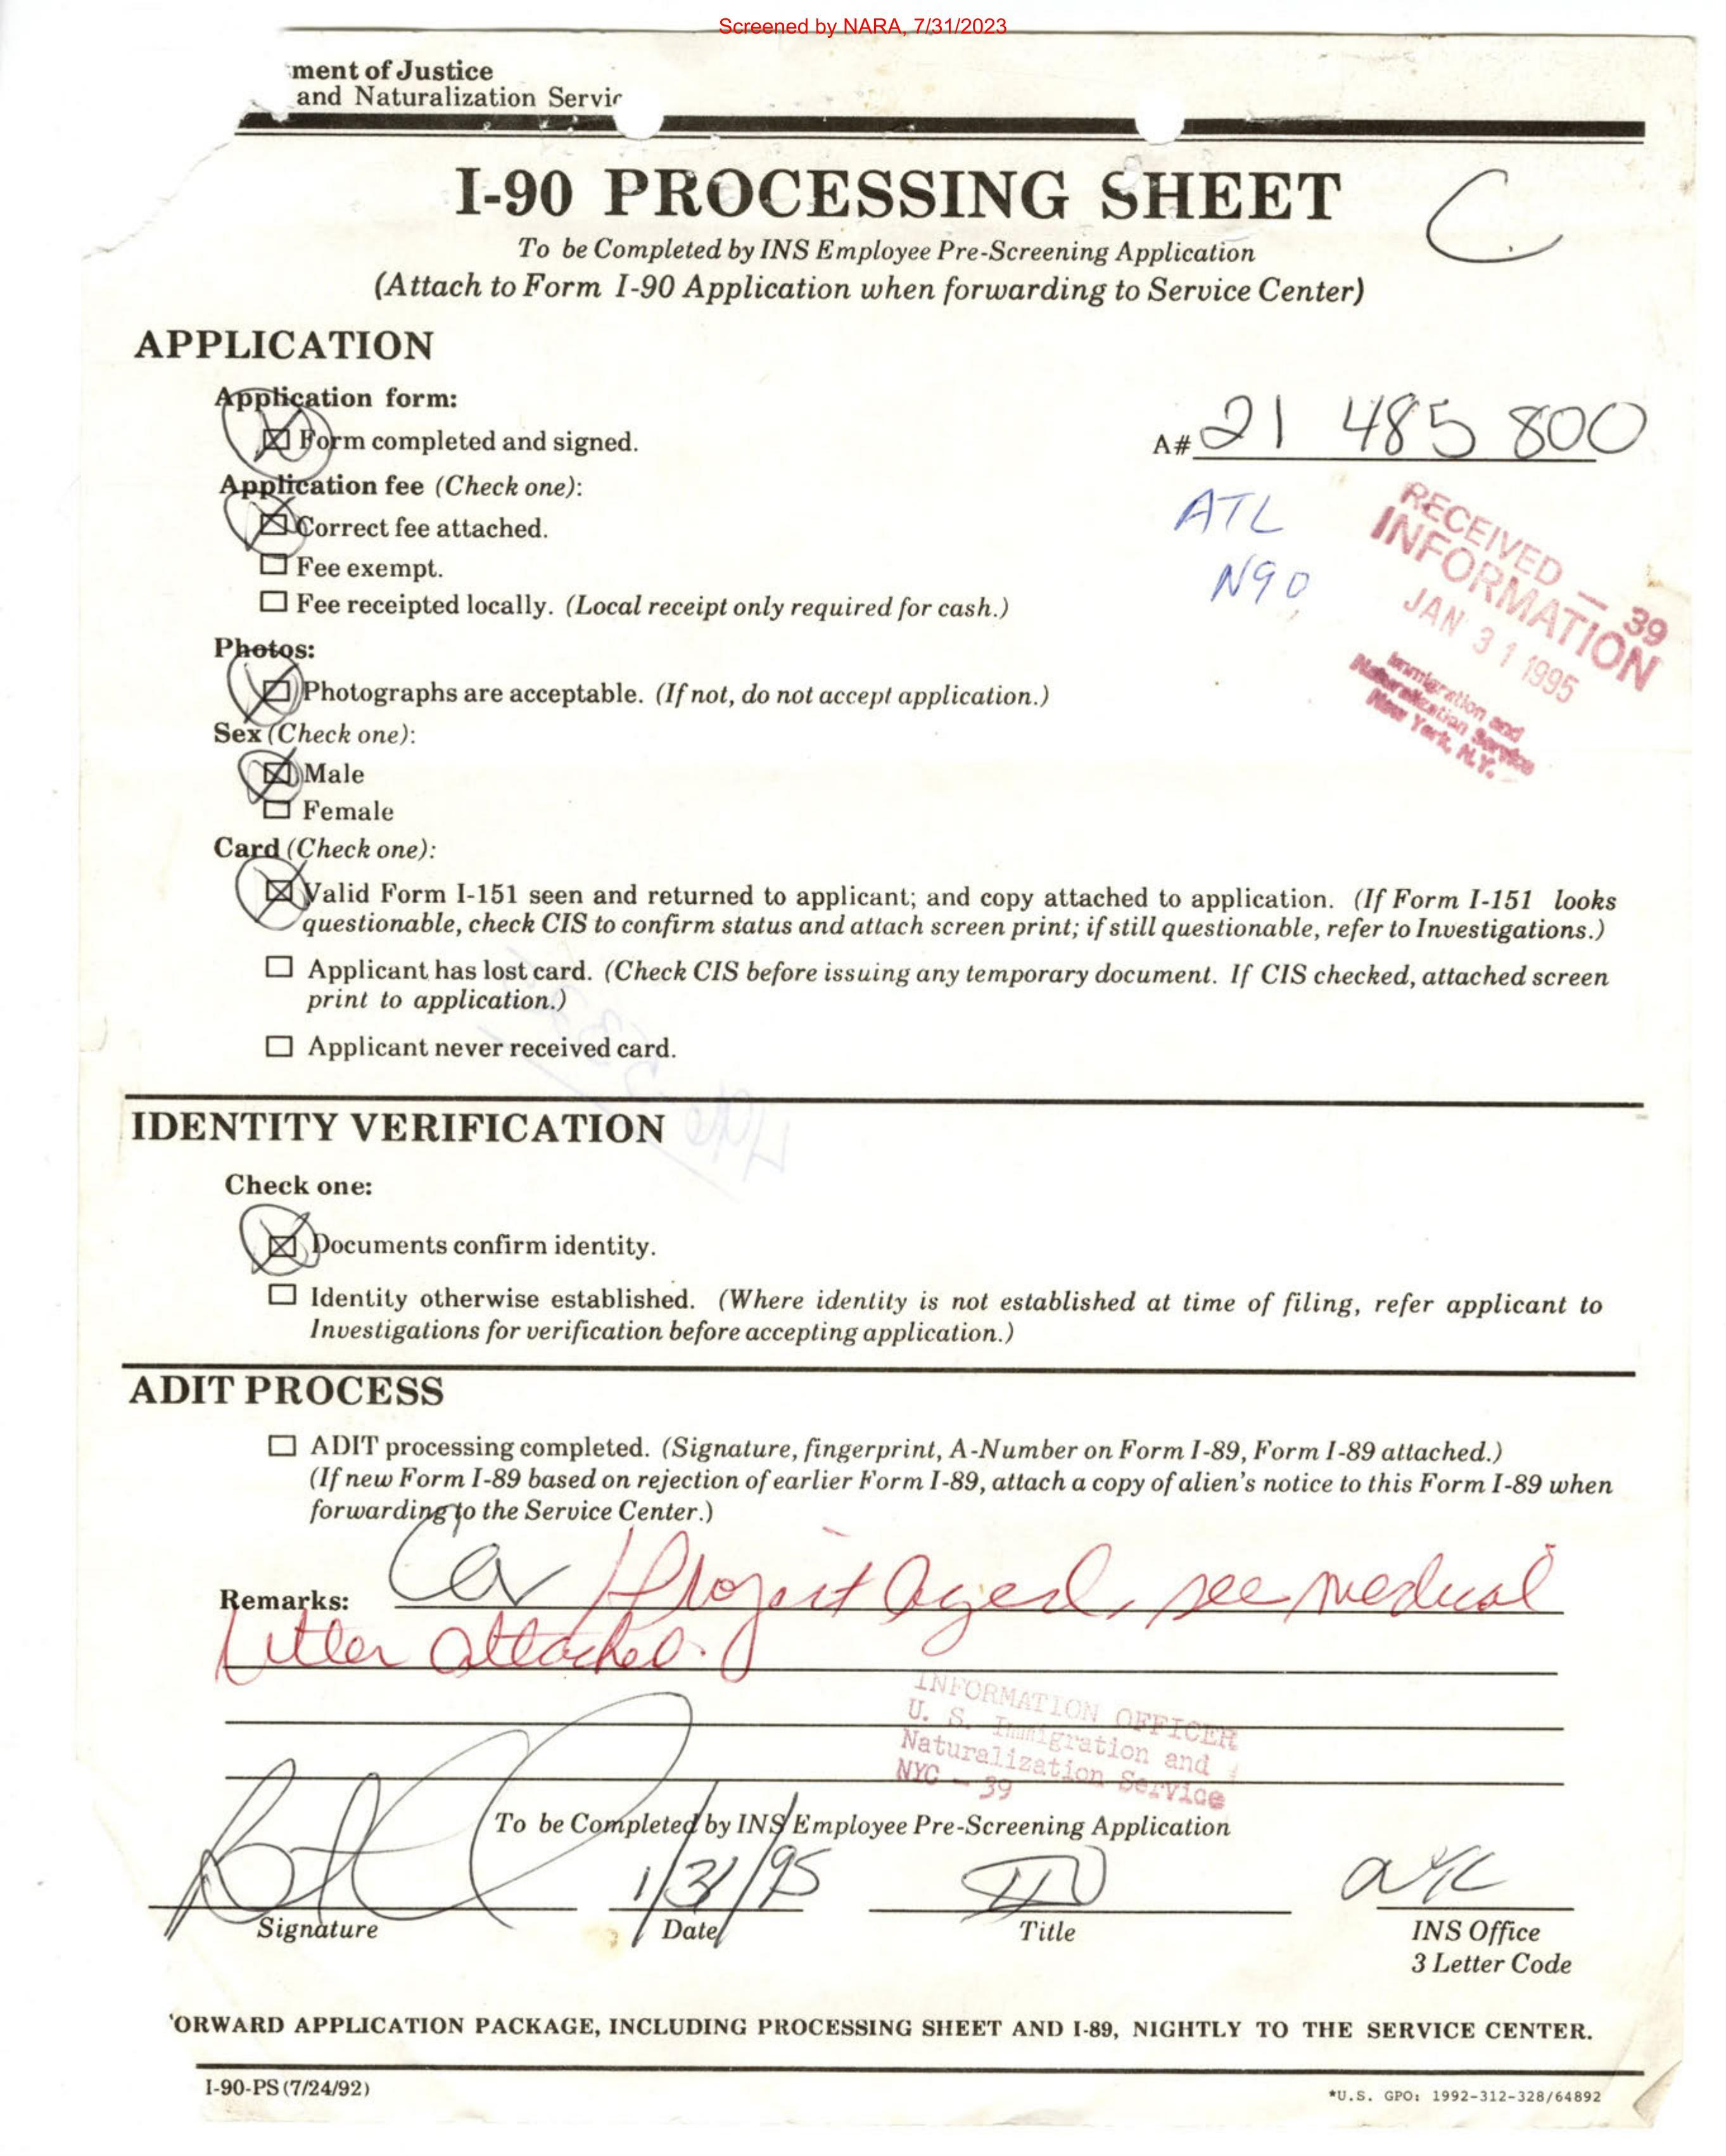 Screened by NARA, 7/31/2023
ment of Justice
and Naturalization Servic
I-90 PROCESSING SHEET
C
To be Completed by INS Employee Pre-Screening Application
(Attach to Form I-90 Application when forwarding to Service Center)
APPLICATION
Application form:
Form completed and signed.
A# 21 485 800
Application fee (Check one):
Correct fee attached.
ATL
Fee exempt.
N90
Fee receipted locally. (Local receipt only required for cash.)
RECEIVED — 39
INFORMATION
JAN 31 1995
Immigration and
Naturalization Service
New York, N.Y.
Photos:
Photographs are acceptable. (If not, do not accept application.)
Sex (Check one):
Male
Female
Card (Check one):
Valid Form I-151 seen and returned to applicant; and copy attached to application. (If Form I-151 looks
questionable, check CIS to confirm status and attach screen print; if still questionable, refer to Investigations.)
Applicant has lost card. (Check CIS before issuing any temporary document. If CIS checked, attached screen
print to application.)
Applicant never received card.
IDENTITY VERIFICATION
Check one:
Documents confirm identity.
Identity otherwise established. (Where identity is not established at time of filing, refer applicant to
Investigations for verification before accepting application.)
ADIT PROCESS
ADIT processing completed. (Signature, fingerprint, A-Number on Form I-89, Form I-89 attached.)
(If new Form I-89 based on rejection of earlier Form I-89, attach a copy of alien's notice to this Form I-89 when
forwarding to the Service Center.)
Remarks: Project Aged, see medical
letter attached.
INFORMATION OFFICER
U. S. Immigration and
Naturalization Service
NYC - 39
To be Completed by INS Employee Pre-Screening Application
1/31/95 NYC
Signature Date Title INS Office
3 Letter Code
ORWARD APPLICATION PACKAGE, INCLUDING PROCESSING SHEET AND I-89, NIGHTLY TO THE SERVICE CENTER.
I-90-PS (7/24/92)
*U.S. GPO: 1992-312-328/64892